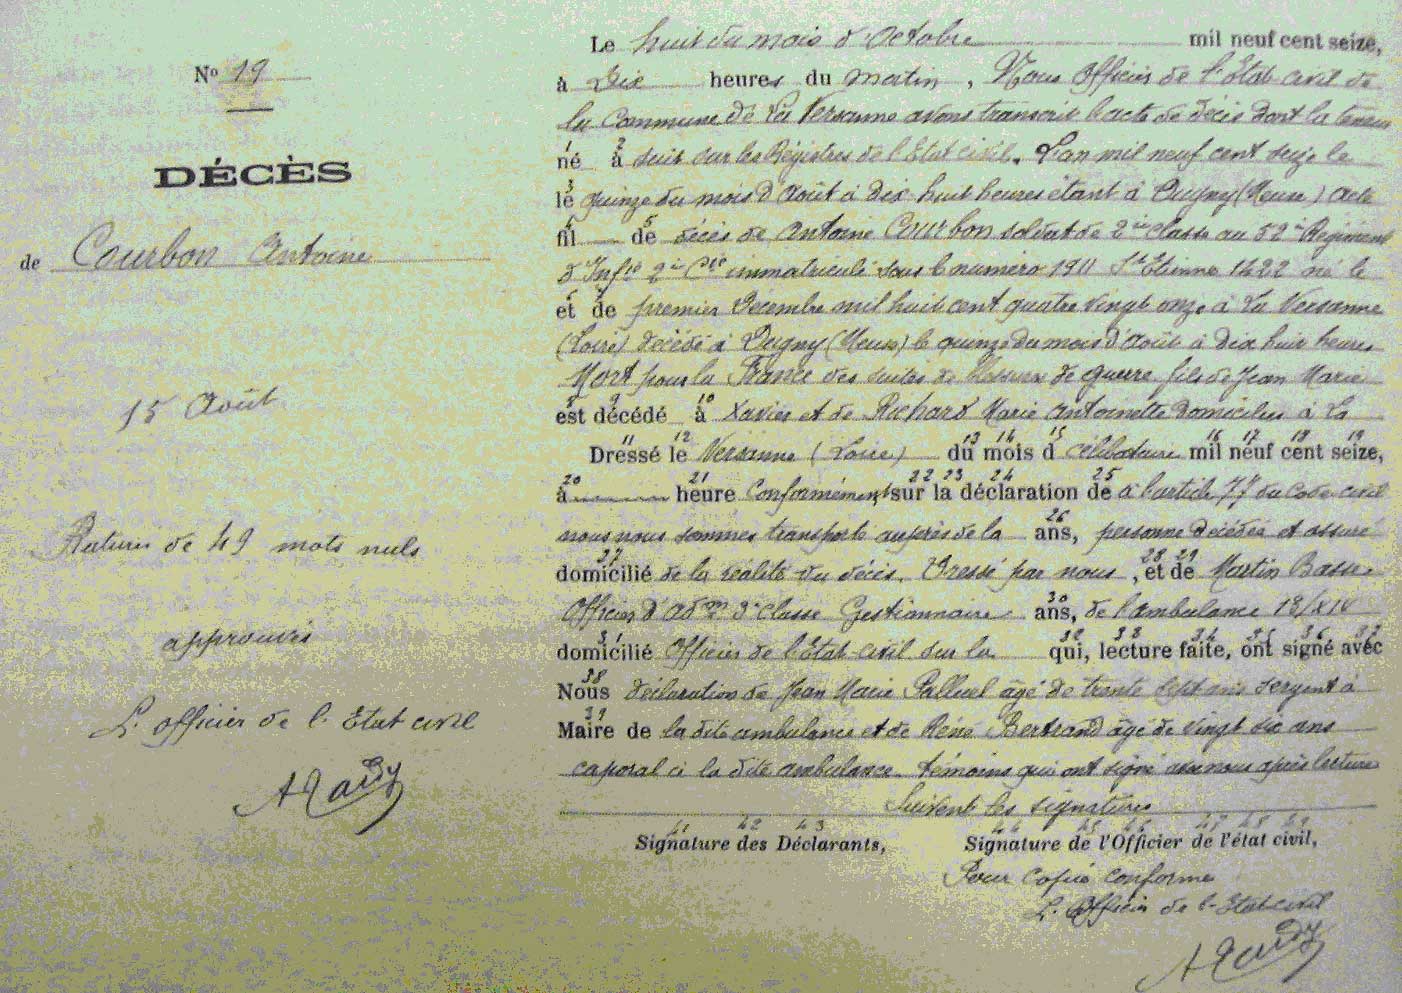 N° 19
DÉCÈS
de Courbon Antoine
15 Août
Ratures de 49 mots nuls
approuvés
L'officier de l'Etat civil
Le huit du mois d'Octobre mil neuf cent seize,
à Dix heures du matin, Nous Officier de l'Etat civil de
la Commune de La Versanne avons transcrit l'acte de décès dont la teneur
né à suit sur les Régistres de l'Etat civil. L'an mil neuf cent seize le
le quinze du mois d'Août à dix huit heures étant à Dugny (Meuse) acte
fil de décès de Antoine Courbon soldat de 2ième classe au 52ième Régiment
d'Inftie 2ie Cie immatriculé sous le numéro 1911 St Etienne 1422 né le
et de premier Décembre mil huit cent quatre vingt onze à La Versanne
(Loire) décédé à Dugny (Meuse) le quinze du mois d'Août à dix huit heures
Mort pour la France des suites de blessures de guerre, fils de Jean Marie
est décédé à Xavier et de Richard Marie Antoinette domiciliés à La
Dressé le Versanne (Loire) du mois d célibataire mil neuf cent seize,
à heure Conformément sur la déclaration de à l'article 77 du Code civil
nous nous sommes transporté auprès de la ans, personne décédée et assuré
domicilié de la réalité du décès. Dressé par nous, et de Martin Basse
Officier d'Adon 3e classe Gestionnaire ans, de l'ambulance 13/XIV
domicilié Officier de l'Etat-civil sur la qui, lecture faite, ont signé avec
Nous déclaration de Jean Marie Palluel âgé de trente sept ans sergent à
Maire de la dite ambulance et de Réné Bertrand âgé de vingt six ans
caporal à la dite ambulance témoins qui ont signé avec nous après lecture
Suivent les signatures
Signature des Déclarants, Signature de l'Officier de l'état civil,
Pour copie conforme
L'Officier de l'Etat civil